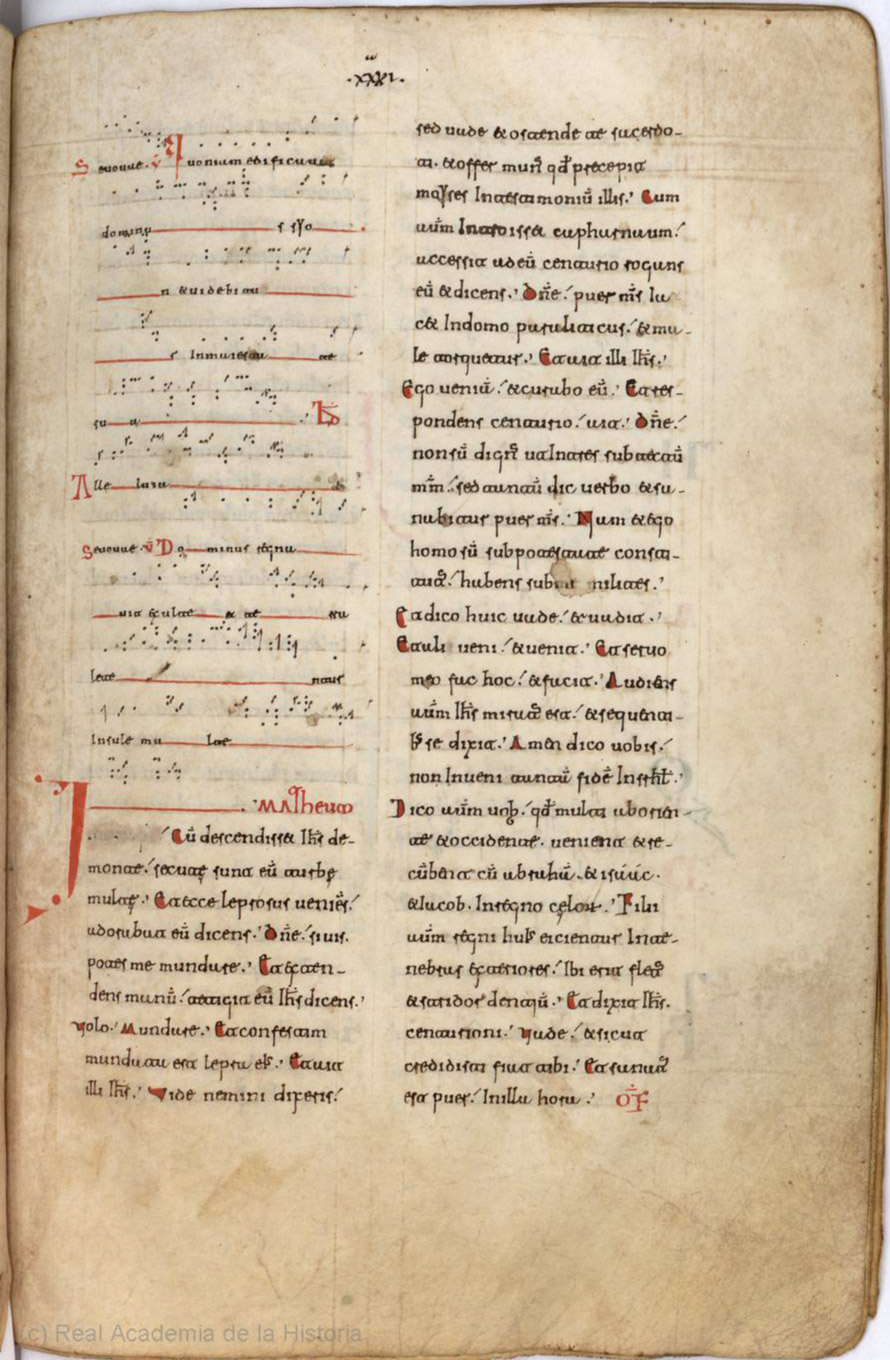 .xxxvi.
Seuouae. V̄ Quoniam edificaui
dominu s syo
n & uidebitu
r Inmaiesta te
su a
Alle luia
Seuouae. V̄ Do minus regna
uit exulte & te rra
lete ntur
Insule mu lte
Matheum
I
Cū descendiss& Ihs de
monte. secute sunt eū turbe
multe. Et ecce leprosus ueniēs.
adorabat eū dicens. Dn̄e. si uis.
potes me mundare. Et exten-
dens manū. tetigit eū Ihs dicens.
Volo. Mundare. Et confestim
mundata est lepra eius. Et ait
illi Ihs. Vide nemini dixeris.
sed uade & ostende te sacerdo-
ti. & offer mun̄ qd̄ precepit
moyses Intestimoniū illis. Cum
aūm Introiss& capharnaum.
accessit ad eū centurio rogans
eū & dicens. Dn̄e. puer m̄s Ia
c& Indomo paraliticus. & ma-
le torquetur. Et ait illi Ihs.
Ego ueniā. & curabo eū. Et res-
pondens centurio. ait. Dn̄e.
non sū dign̄ ut Intres sub tectū
m̄m. sed tantū dic uerbo & sa-
nabitur puer m̄s. Nam & ego
homo sū sub potestate consti-
tut̄. habens sub milites.
Et dico huic uade. & uadit.
Et alii ueni. & uenit. Et seruo
meo fac hoc. & facit. Audiens
aūm Ihs miratus est. & sequenti-
bus se dixit. Amen dico uobis.
non Inueni tantā fidē Insrhl.
Dico aūm uob. qd̄ multi ab orien-
te & occidente. uenient & re-
cūbent cū abraham. & isááć.
& Iacob. Inregno celorum. Filii
aūm regni huius eicientur Inte-
nebras exteriores. Ibi erit fletus
& stridor dentiū. Et dixit Ihs.
centurioni. Vade. & sicut
credidisti fiat tibi. Et sanatus
est puer. Inilla hora. OF
(c) Real Academia de la Historia